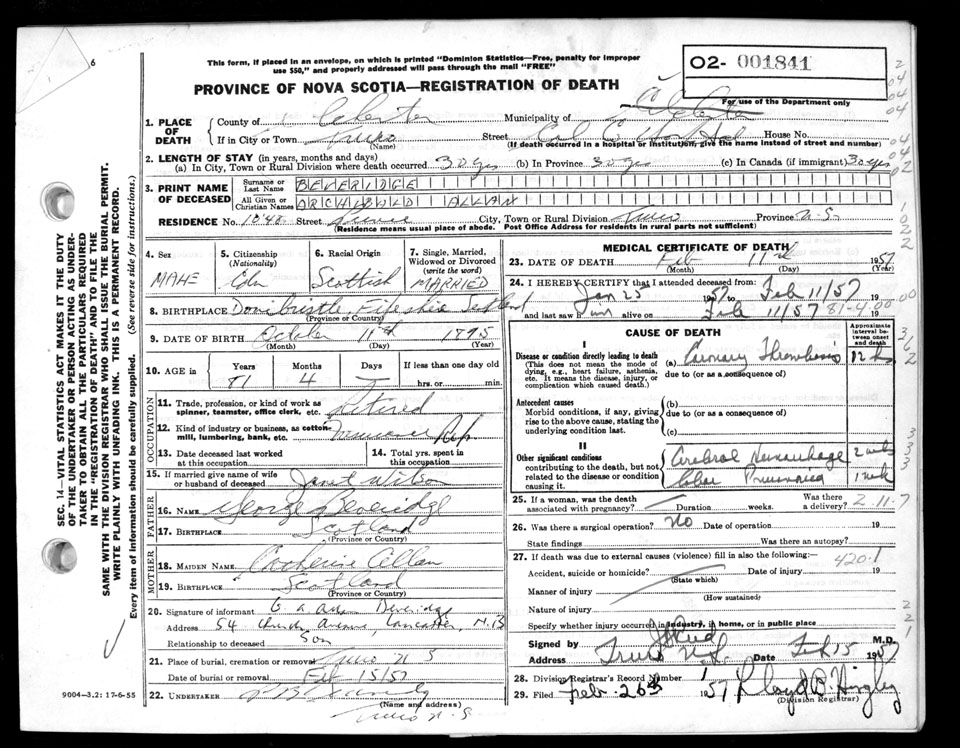 6
This form, if placed in an envelope, on which is printed "Dominion Statistics—Free, penalty for improper
use $50," and properly addressed will pass through the mail "FREE"
O2- 001841
PROVINCE OF NOVA SCOTIA—REGISTRATION OF DEATH
For use of the Department only
1. PLACE OF DEATH
County of Colchester Municipality of Colchester
If in City or Town Truro (Name) Street House No.
(If death occurred in a hospital or institution, give the name instead of street and number)
2. LENGTH OF STAY (in years, months and days)
(a) In City, Town or Rural Division where death occurred 30 yrs (b) In Province 30 yrs (c) In Canada (if immigrant) 30 yrs
3. PRINT NAME OF DECEASED
Surname or Last Name BEVERIDGE
All Given or Christian Names ARCHIBALD ALLAN
RESIDENCE No. 1048 Street Prince City, Town or Rural Division Truro Province N.S.
(Residence means usual place of abode. Post Office Address for residents in rural parts not sufficient)
4. Sex
MALE
5. Citizenship (Nationality)
Cdn
6. Racial Origin
Scottish
7. Single, Married, Widowed or Divorced (write the word)
MARRIED
8. BIRTHPLACE Donibristle, Fifeshire Scotland
(Province or Country)
9. DATE OF BIRTH October 11th 1875
(Month) (Day) (Year)
10. AGE in
Years 81
Months 4
Days
If less than one day old
hrs. or min.
OCCUPATION
11. Trade, profession, or kind of work as
spinner, teamster, office clerk, etc. Retired
12. Kind of industry or business, as cotton-
mill, lumbering, bank, etc. Insurance Rep.
13. Date deceased last worked
at this occupation
14. Total yrs. spent in
this occupation
15. If married give name of wife
or husband of deceased Janet Wilson
FATHER
16. NAME George Beveridge
17. BIRTHPLACE Scotland
(Province or Country)
MOTHER
18. MAIDEN NAME Catherine Allan
19. BIRTHPLACE Scotland
(Province or Country)
20. Signature of informant Beveridge
Address 54 Church Avenue, Lancaster, N.B
Relationship to deceased Son
21. Place of burial, cremation or removal Truro N S
Date of burial or removal Feb 15/57
22. UNDERTAKER
(Name and address)
Truro N.S.
MEDICAL CERTIFICATE OF DEATH
23. DATE OF DEATH Feb 11 1957
(Month) (Day) (Year)
24. I HEREBY CERTIFY that I attended deceased from:
Jan 25 1957 to Feb 11/57 19
and last saw him alive on Feb 11/57 19
81-4-00.00
CAUSE OF DEATH
Approximate interval between onset and death
I
Disease or condition directly leading to death
(This does not mean the mode of
dying, e.g., heart failure, asthenia,
etc. It means the disease, injury, or
complication which caused death.)
(a) Coronary Thrombosis
due to (or as a consequence of)
12 hrs
Antecedent causes
Morbid conditions, if any, giving
rise to the above cause, stating the
underlying condition last.
(b)
due to (or as a consequence of)
(c)
II
Other significant conditions
contributing to the death, but not
related to the disease or condition
causing it.
Cerebral Hemorrhage 2 wks
Lobar Pneumonia 1 week
25. If a woman, was the death
associated with pregnancy? Duration weeks. Was there
a delivery? 2-11-7
26. Was there a surgical operation? No Date of operation 19
State findings Was there an autopsy?
27. If death was due to external causes (violence) fill in also the following:
420.1
Accident, suicide or homicide? Date of injury 19
(State which)
Manner of injury
(How sustained)
Nature of injury
Specify whether injury occurred in industry, in home, or in public place
Signed by M.D.
Address Truro N.S. Date Feb 15 1957
28. Division Registrar's Record Number
29. Filed Feb. 26 1957 Lloyd B. Higby
(Division Registrar)
SEC. 14—VITAL STATISTICS ACT MAKES IT THE DUTY
OF THE UNDERTAKER OR PERSON ACTING AS UNDER-
TAKER TO OBTAIN ALL THE PARTICULARS REQUIRED
IN THE "REGISTRATION OF DEATH" AND TO FILE THE
SAME WITH THE DIVISION REGISTRAR WHO SHALL ISSUE THE BURIAL PERMIT.
WRITE PLAINLY WITH UNFADING INK. THIS IS A PERMANENT RECORD.
Every item of information should be carefully supplied. (See reverse side for instructions.)
9004—3.2: 17-6-55